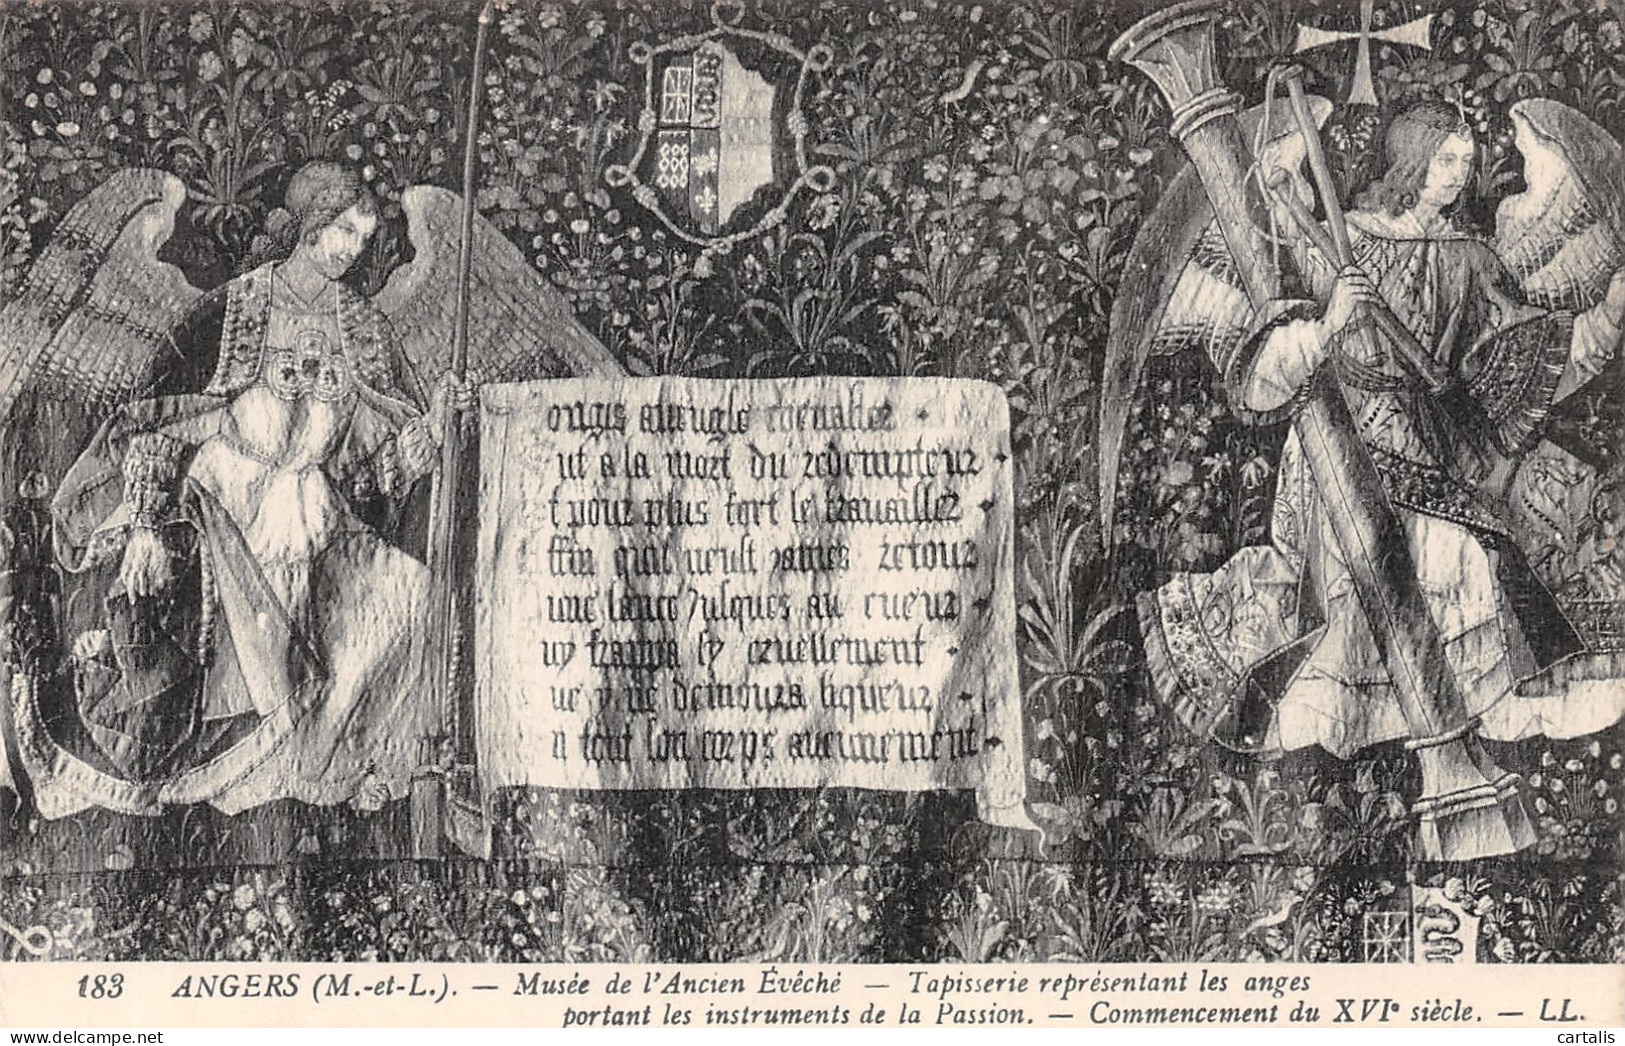 ongis aueugle cheuallez
ut a la mort du redempteur
t pour plus fort le trauailler
ffin quil neust james retour
une lance jusques au cueur
uy frappa sy cruellement
ue y ne demoura liqueur
n tout son corps aucunement
183 ANGERS (M.-et-L.). — Musée de l'Ancien Évêché — Tapisserie représentant les anges
portant les instruments de la Passion. — Commencement du XVIe siècle. — LL.
cartalis